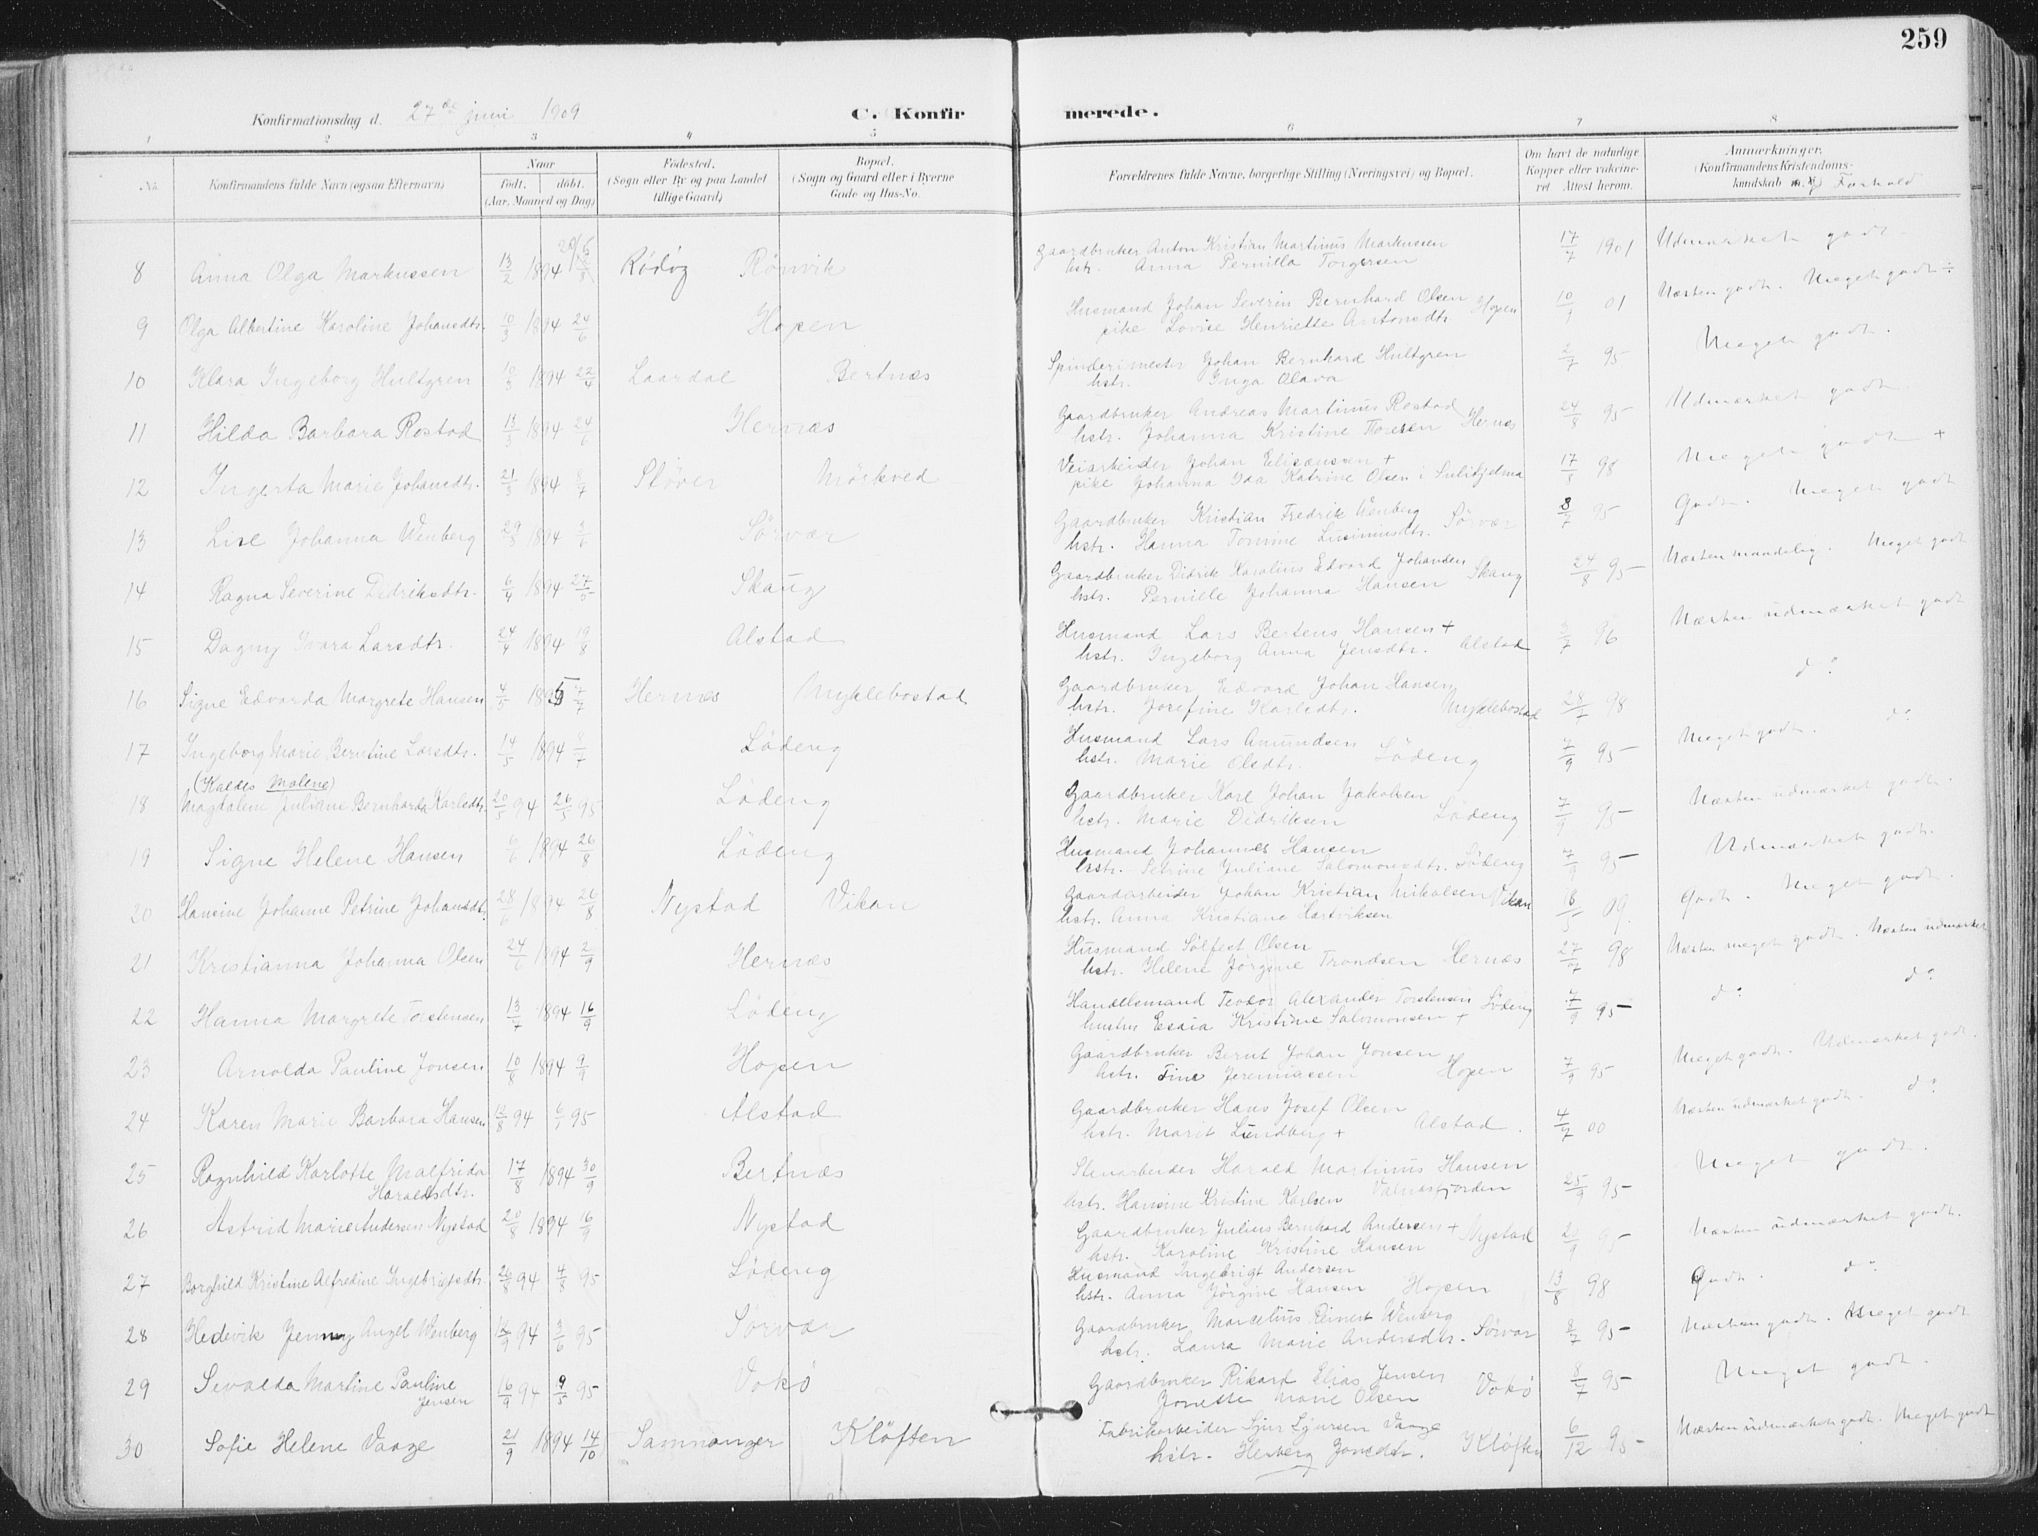 259
Konfirmationsdag d. 27de juni 1909
C. Konfirmerede.
1 2 3 4 5 6 7 8
No.
Konfirmandens fulde Navn (ogsaa Efternavn)
Naar
født. døbt.
(Aar, Maaned og Dag)
Fødested.
(Sogn eller By og paa Landet
tillige Gaard)
Bopæl.
(Sogn og Gaard eller i Byerne
Gade- og Hus-No.
Forældrenes fulde Navne, borgerlige Stilling (Næringsvei) og Bopæl.
Om havt de naturlige
Kopper eller vakcine-
ret Attest herom.
Anmærkninger.
(Konfirmandens Kristendoms-
kundskab og Forhold
8 Anna Olga Markussen 13/2 1894 Rödöy Rönvik Gaardbruker Anton Kristian Martinus Markussen 17/7 1901 Udmærket godt
hstr. Anna Pernilla Torgersen
9 Olga Albertine Karoline Johansdtr. 10/3 1894 24/6 Hopen Husmand Johan Severin Bernhard Olsen Hopen 10/9 01 Næsten godt. Meget godt ÷
pike Lovise Henriette Antonsdtr.
10 Klara Ingeborg Hultgren 10/3 1894 22/4 Laardal Bertnæs Spinderimester Johan Bernhard Hultgren 2/7 95 Meget godt.
hstr. Inga Olava
11 Hilda Barbara Rostad 13/3 1894 24/6 Hernæs Gaardbruker Andreas Martinus Rostad Hernes 24/8 95 Udmærket godt.
hstr. Johanna Kristine Toresen
12 Ingerta Marie Johansdtr. 21/3 1894 8/7 Støver Mörkved Veiarbeider Johan Eliseussen + 17/8 98 Meget godt +
pike Johanna Ida Katrine Olsen i Sulitjelma
13 Lise Johanna Wenberg 29/8 1894 3/6 Sörvær Gaardbruker Kristian Fredrik Wenberg Sörvær 8/7 95 Godt. Meget godt
hstr. Hanna Tomine
14 Ragna Severine Didriksdtr. 6/4 1894 27/5 Skaug Gaardbruker Didrik Karolius Edvard Johansen Skaug 24/8 95 Næsten maadelig. Meget godt
hstr. Pernille Johanna Hansen
15 Dagny Ivara Larsdtr. 24/4 1894 19/8 Alstad Husmand Lars Bertens Hansen + Alstad 3/7 96 Næsten udmærket godt
hstr. Ingeborg Anna Jensdtr.
16 Signe Edvarda Margrete Hansen 4/5 1895 7/7 Hernes Myklebostad Gaardbruker Edvard Johan Hansen Myklebostad 28/7 98 do
hstr. Josefine Karlsdtr.
17 Ingeborg Marie Berntine Larsdtr. 14/5 1894 8/7 Lödeng Husmand Lars Amundsen Lödeng 7/9 95 Meget godt. do
hstr. Marie Olsdtr.
(Kaldes Malene)
18 Magdalene Juliane Bernharda Karlsdtr. 20/5 94 26/5 95 Lödeng Gaardbruker Karl Johan Jakobsen Lödeng 7/9 95 Næsten udmærket godt.
hstr. Marie Didriksen
19 Signe Helene Hansen 6/6 1894 26/8 Lödeng Husmand Johannes Hansen 7/9 95 Udmærket godt.
hstr. Petrine Juliane Salomonsdtr. Lödeng
20 Hansine Johanne Petrine Johansdtr. 28/6 1894 26/8 Nystad Vikan Gaardarbeider Johan Kristian Mikalsen Vikan 16/5 09. Godt. Meget godt.
hstr. Anna Kristiane Hartviksen
21 Kristianna Johanna Olsen 24/6 1894 2/9 Hernæs Husmand Sölfest Olsen 27/7 98 Næsten meget godt. Næsten udmærket
hstr. Helene Jörgine Trondsen Hernæs
22 Hanna Margrete Torstensen 13/7 1894 16/9 Lödeng Handelsmand Teodor Alexander Torstensen Lödeng 7/9 95 do do
hustru Esaia Kristine Salomonsen +
23 Arnolda Pauline Jonsen 10/8 1894 9/9 Hopen Gaardbruker Bernt Johan Jonsen Hopen 7/9 95 Meget godt. Udmærket godt.
hstr. Tine Jeremiassen
24 Karen Marie Barbara Hansen 12/8 94 95 Alstad Gaardbruker Hans Josef Olsen 4/7 00 Næsten udmærket godt. do
hstr. Marit Lundberg + Alstad.
25 Ragnhild Karlotte Malfrida 17/8 1894 30/9 Bertnæs Stenarbeider Harald Martinus Hansen 25/9 95 Meget godt.
Haraldsdtr. hstr. Hansine Kristine Karlsen Valnesfjorden
26 Astrid Marie Andersen Nystad 20/8 1894 16/9 Nystad Gaardbruker Julius Bernhard Andersen + Nystad 95 Næsten udmærket godt.
hstr. Karoline Kristine Hansen
27 Borghild Kristine Alfredine Ingebrigtsdtr. 26/8 94 4/8 95 Lödeng Husmand Ingebrigt Andersen 13/8 98 Godt. do
hstr. Anna Jörgine Hansen Hopen
28 Hedevik Jenny Angel Wenberg 94 3/6 95 Sörvær Gaardbruker Marcelius Reinert Wenberg 8/7 95 Næsten godt. Meget godt
hstr. Laura Marie Andersdtr. Sörvær
29 Sevalda Martine Pauline 16/9 94 9/5 95 Vokö Gaardbruker Rikard Elias Jensen Vokö 8/7 95 Meget godt.
Jensen Jonette Marie Olsen
30 Sofie Helene Vaage 21/9 1894 14/10 Samnanger Kløften Fabrikarbeider Sjur Sjursen Vaage 6/12 95 Næsten udmærket godt. Meget godt
hstr. Herborg Jonsdtr. Kløften